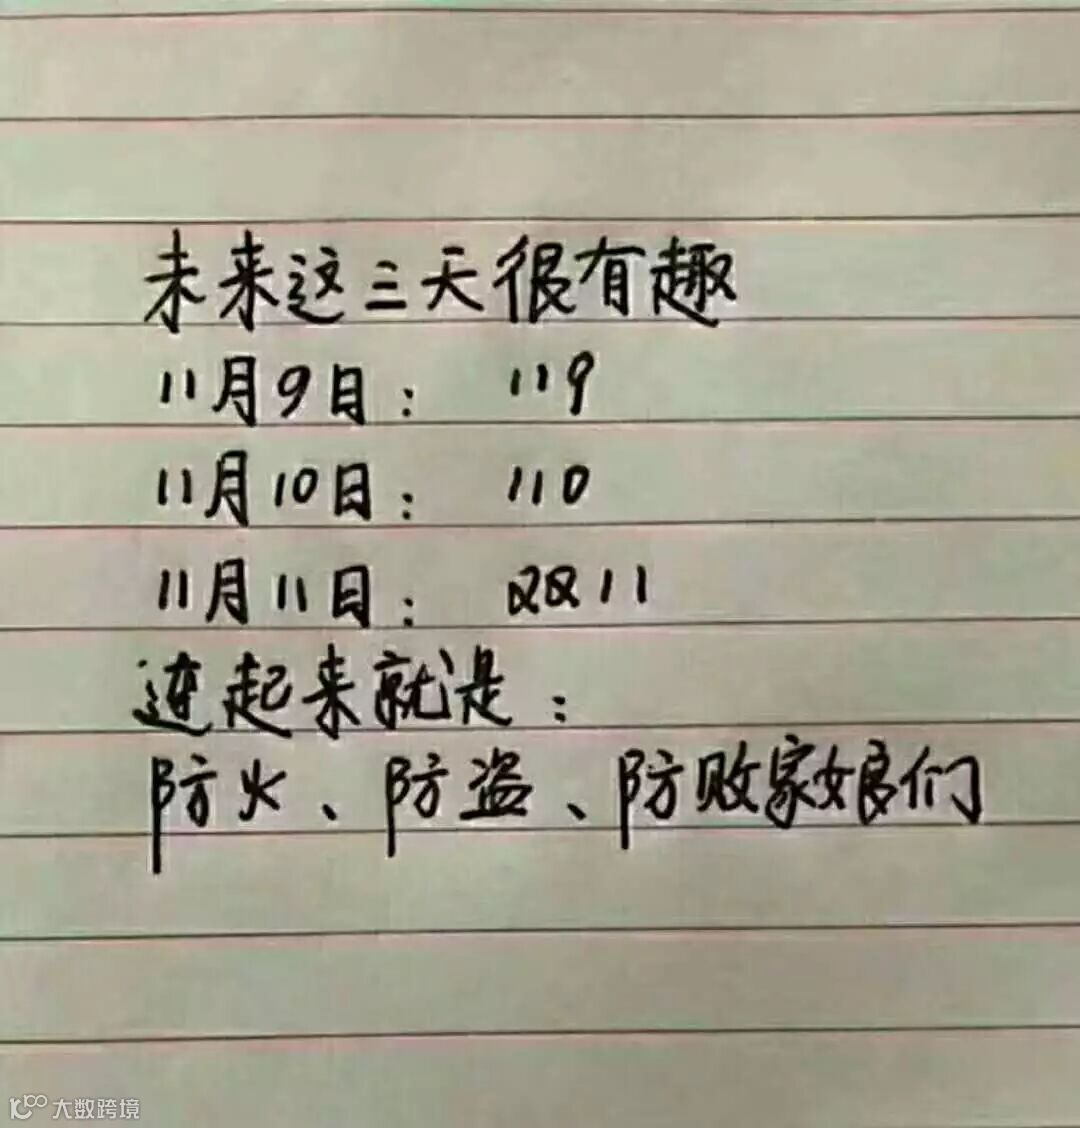 未来这三天很有趣
11月9日： 119
11月10日： 110
11月11日： 双11
连起来就是：
防火、防盗、防败家娘们
大数跨境